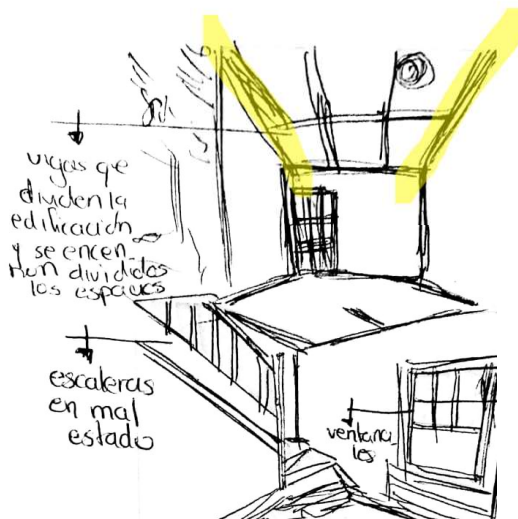 vigas que
dividen la
edificación
y se encen_
tran divididos
los espacios
escaleras
en mal
estado
ventana_
les